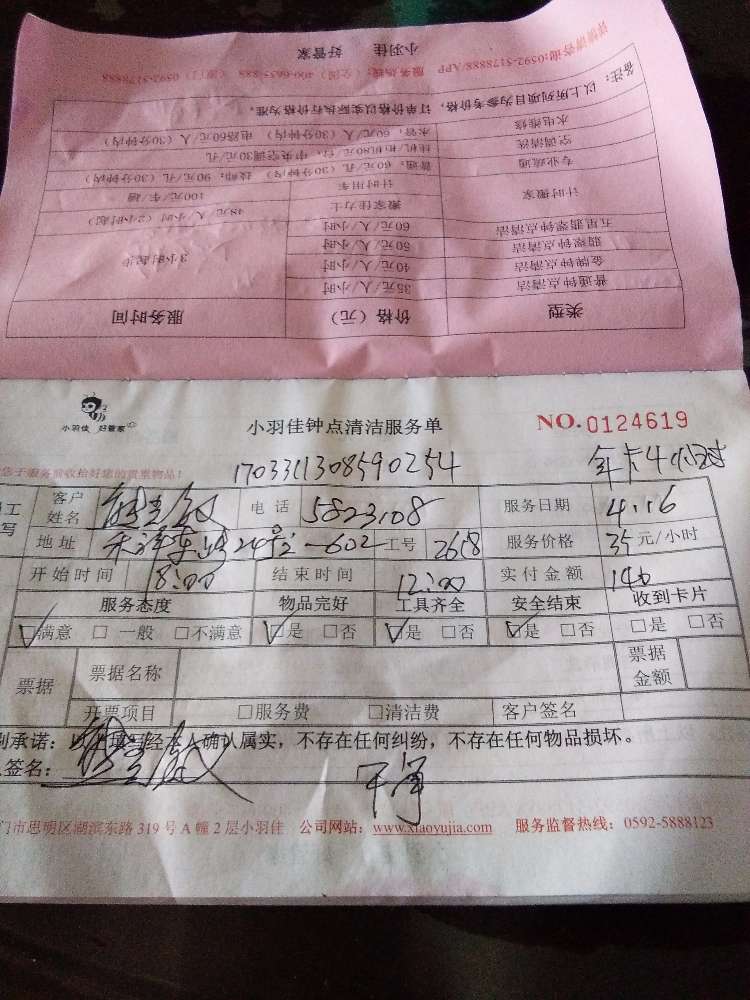 小羽佳 好管家
详情请咨询:0592-3178888/APP 服务热线:（全国）400-6655-888 （厦门）0592-3178888
备注：以上所列项目为参考价格，订单价格以实际执行价格为准。
水电维修 水管：60元/人（30分钟内） 电路60元/人（30分钟内）
空调清洗 挂机 柜机80元/台，中央空调30元/孔
专业疏通 普通：60元/孔（30分钟内） 技师：90元/孔（30分钟内）
计时搬家 计时用车 100元/车/趟
搬家佳力士 48元/人/小时（2小时起）
五星翡翠钟点清洁 60元/人/小时
翡翠钟点清洁 50元/人/小时 3小时起步
金牌钟点清洁 40元/人/小时
普通钟点清洁 35元/人/小时
类型 价格（元） 服务时间
小羽佳 好管家
小羽佳钟点清洁服务单
NO.0124619
您于服务前收拾好您的贵重物品！
1703311308590254
年卡4小时
工 写
客户姓名
电话 5823108
服务日期 4.16
地址 24号 602
工号 2658
服务价格 35元/小时
开始时间 8:00
结束时间 12:00
实付金额 140
服务态度 物品完好 工具齐全 安全结束 收到卡片
☑满意 □一般 □不满意 ☑是 □否 ☑是 □否 ☑是 □否 □是 □否
票据 票据名称 票据金额
开票项目 □服务费 □清洁费 客户签名
承诺：以 经本人确认属实，不存在任何纠纷，不存在任何物品损坏。
签名：
门市思明区湖滨东路319号A幢2层小羽佳 公司网站：www.xiaoyujia.com 服务监督热线：0592-5888123